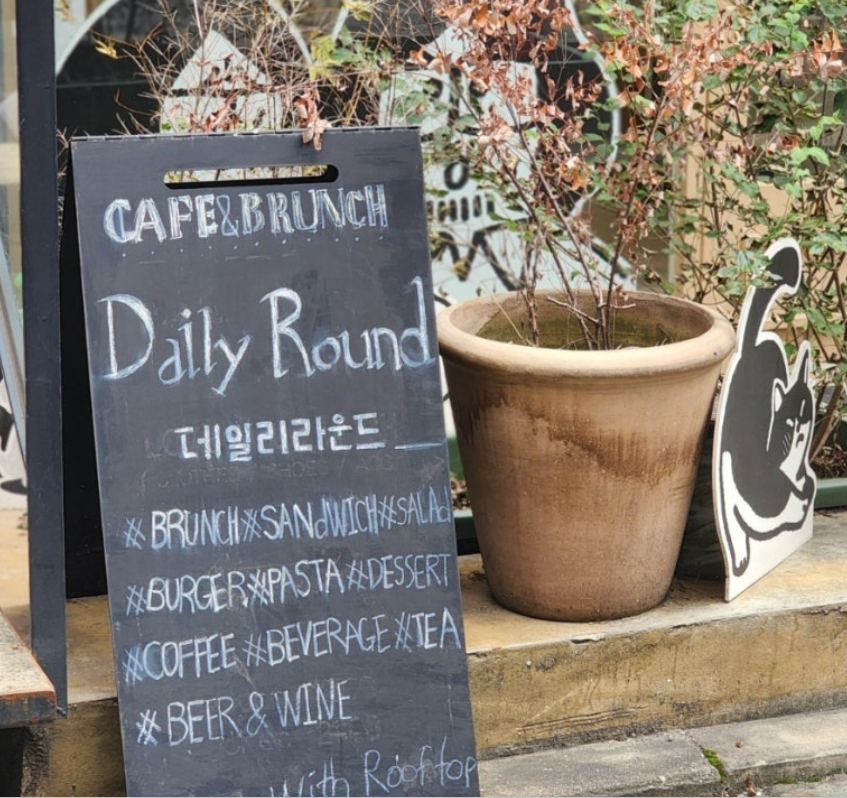 CAFE&BRUNCH
Daily Round
데일리라운드
# BRUNCH#SANdWICH#SALAd
#BURGER#PASTA#DESSERT
#COFFEE #BEVERAGE#TEA
#BEER & WINE
With Rooftop